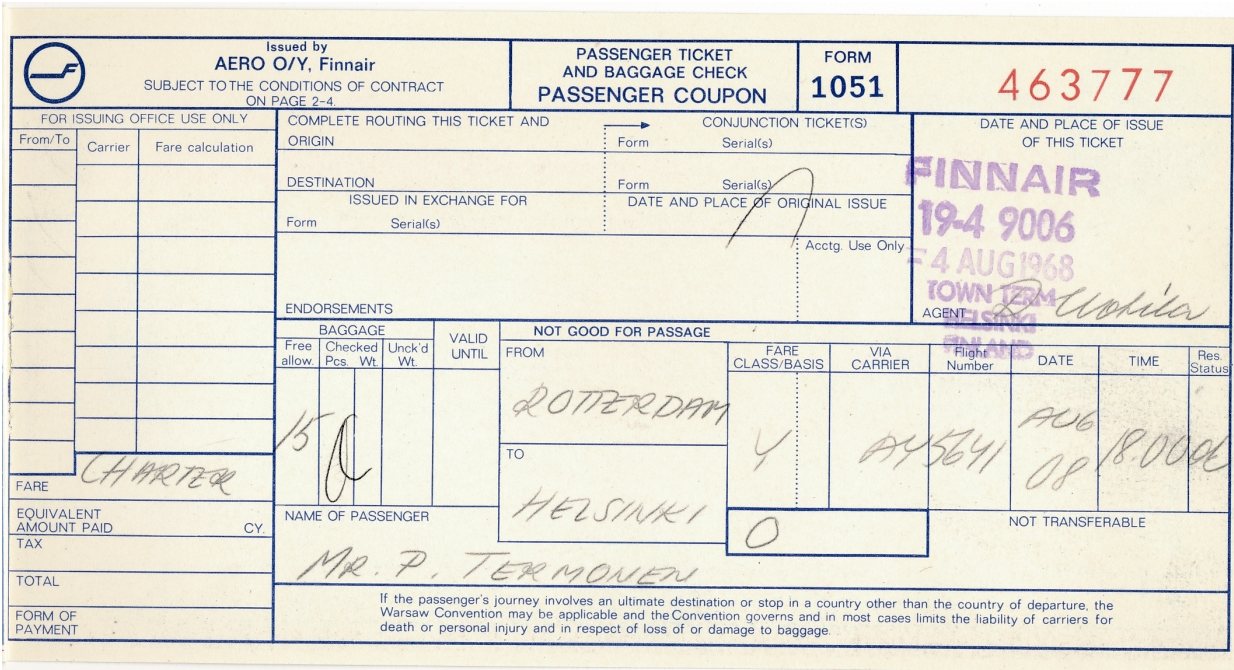 Issued by
AERO O/Y, Finnair
SUBJECT TO THE CONDITIONS OF CONTRACT
ON PAGE 2-4.
PASSENGER TICKET
AND BAGGAGE CHECK
PASSENGER COUPON
FORM
1051
463777
FOR ISSUING OFFICE USE ONLY
From/To Carrier Fare calculation
COMPLETE ROUTING THIS TICKET AND CONJUNCTION TICKET(S)
ORIGIN Form Serial(s)
DESTINATION Form Serial(s)
ISSUED IN EXCHANGE FOR DATE AND PLACE OF ORIGINAL ISSUE
Form Serial(s)
Acctg. Use Only
ENDORSEMENTS
DATE AND PLACE OF ISSUE
OF THIS TICKET
FINNAIR
19-4 9006
4 AUG 1968
TOWN TERM
HELSINKI
FINLAND
AGENT
BAGGAGE
Free allow. Checked Pcs. Wt. Unck'd Wt.
VALID UNTIL
NOT GOOD FOR PASSAGE
FROM
ROTTERDAM
TO
HELSINKI
FARE CLASS/BASIS VIA CARRIER Flight Number DATE TIME Res. Status
15 Y AY 5641 AUG 08 18.00 ok
O
NOT TRANSFERABLE
FARE CHARTER
EQUIVALENT
AMOUNT PAID CY.
TAX
TOTAL
FORM OF
PAYMENT
NAME OF PASSENGER
MR. P. TERMONEN
If the passenger's journey involves an ultimate destination or stop in a country other than the country of departure, the
Warsaw Convention may be applicable and the Convention governs and in most cases limits the liability of carriers for
death or personal injury and in respect of loss of or damage to baggage.